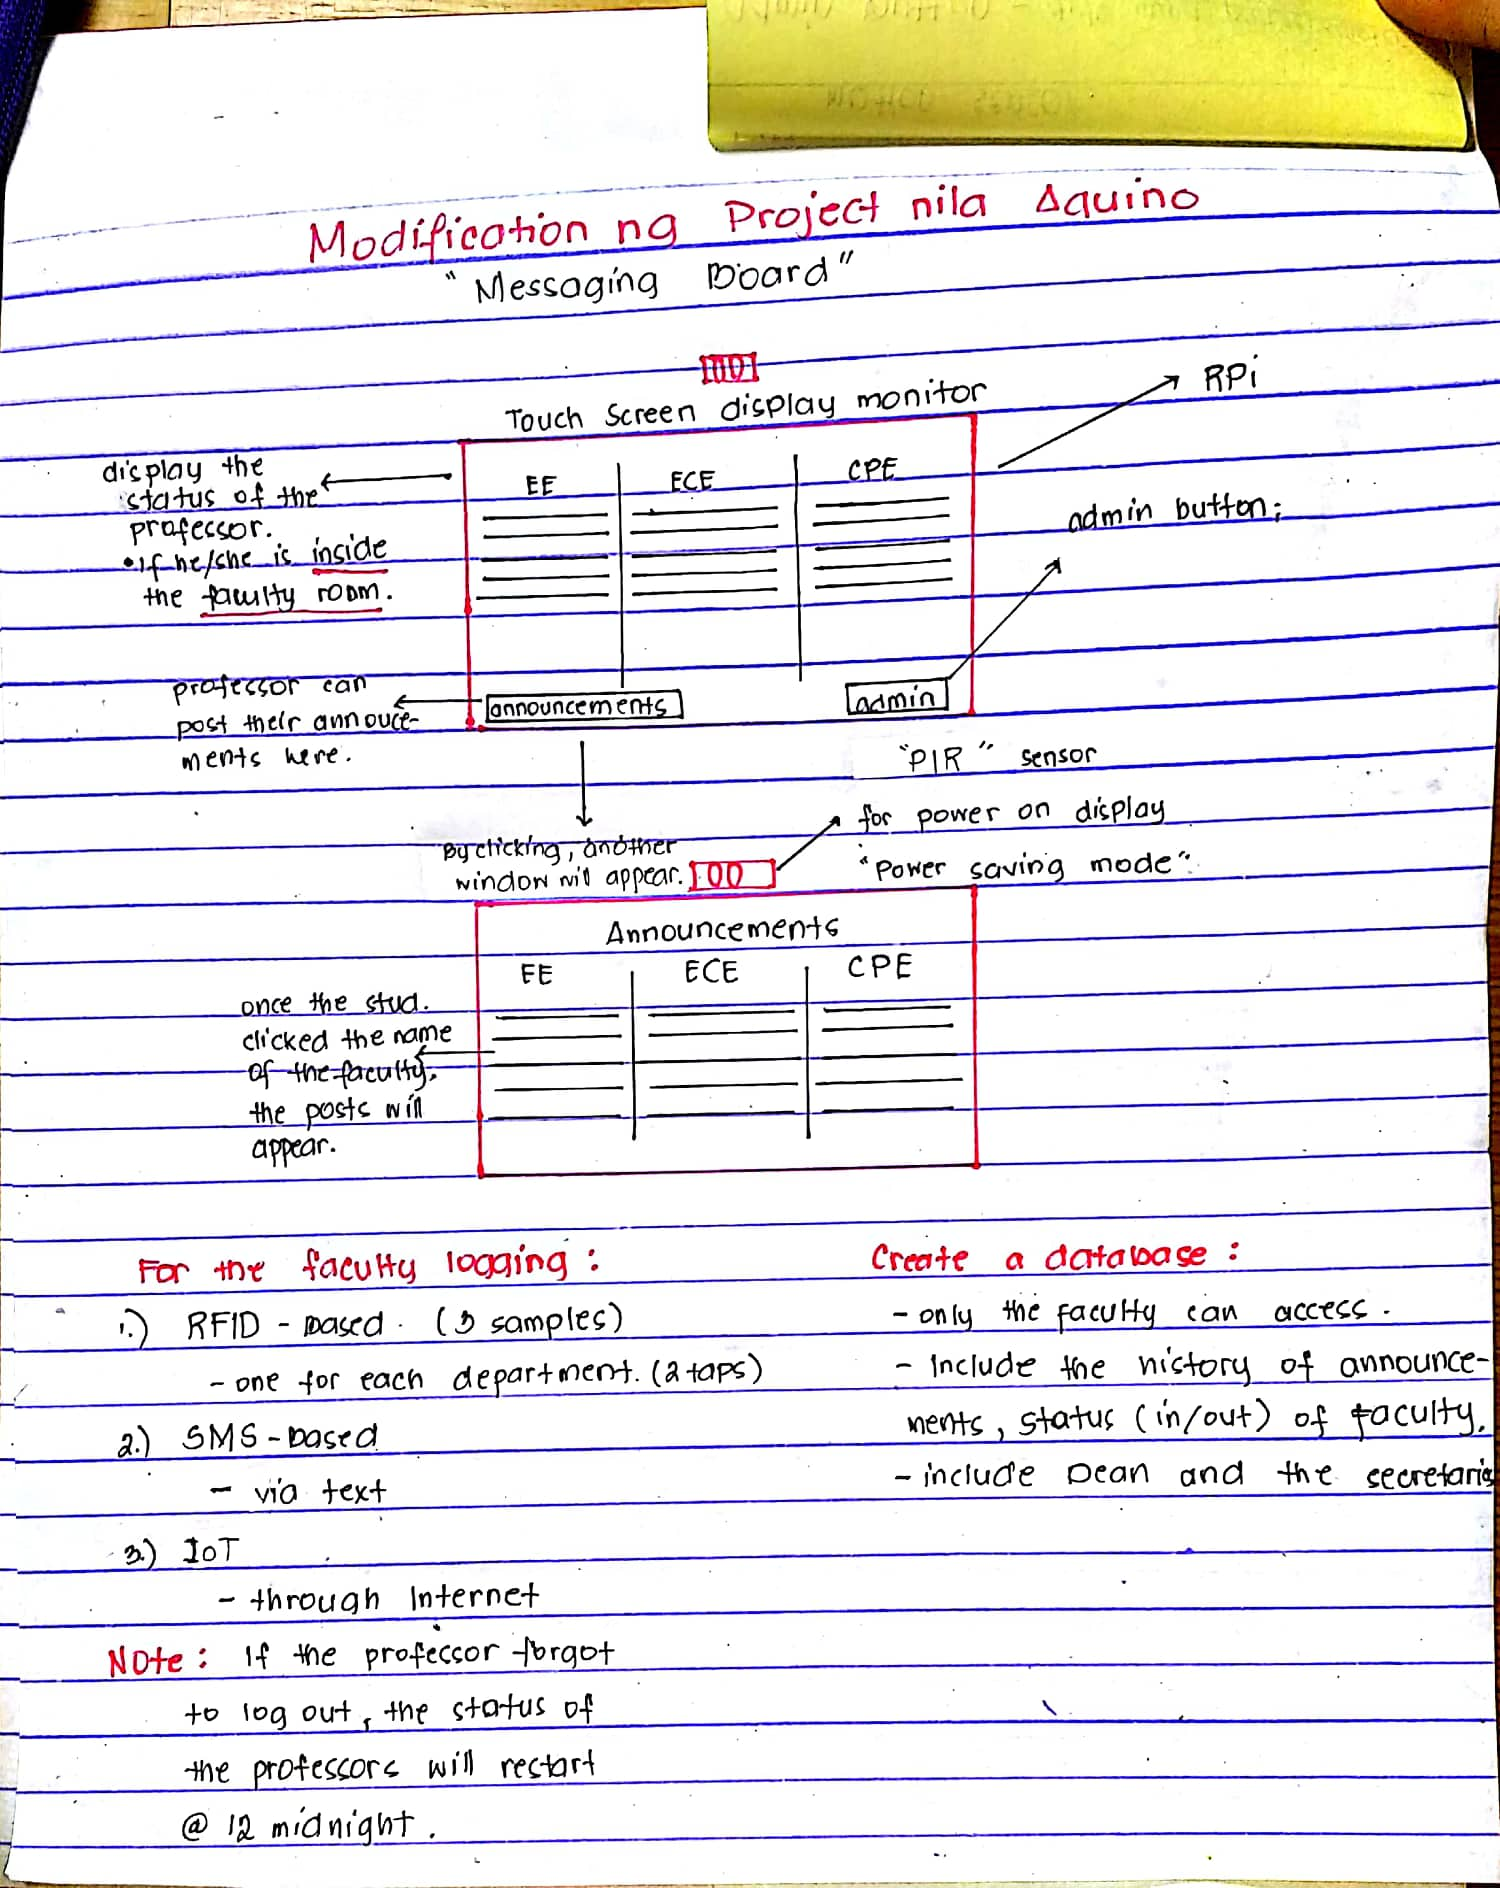 Modification ng Project nila Aquino
"Messaging Board"
Touch Screen display monitor
RPi
display the
status of the
professor.
•If he/she is inside
the faculty room.
EE
ECE
CPE
admin button;
professor can
post their annouce-
ments here.
announcements
admin
"PIR" sensor
for power on display
"Power saving mode".
By clicking, another
window will appear.
Announcements
EE
ECE
CPE
once the stud.
clicked the name
of the faculty,
the posts will
appear.
For the faculty logging :
1.) RFID - based. (3 samples)
- one for each department. (2 taps)
2.) SMS - based
- via text
3.) IoT
- through Internet
Note : If the professor forgot
to log out, the status of
the professors will restart
@ 12 midnight.
Create a database :
- only the faculty can access.
- Include the history of announce-
ments, status (in/out) of faculty.
- include Dean and the